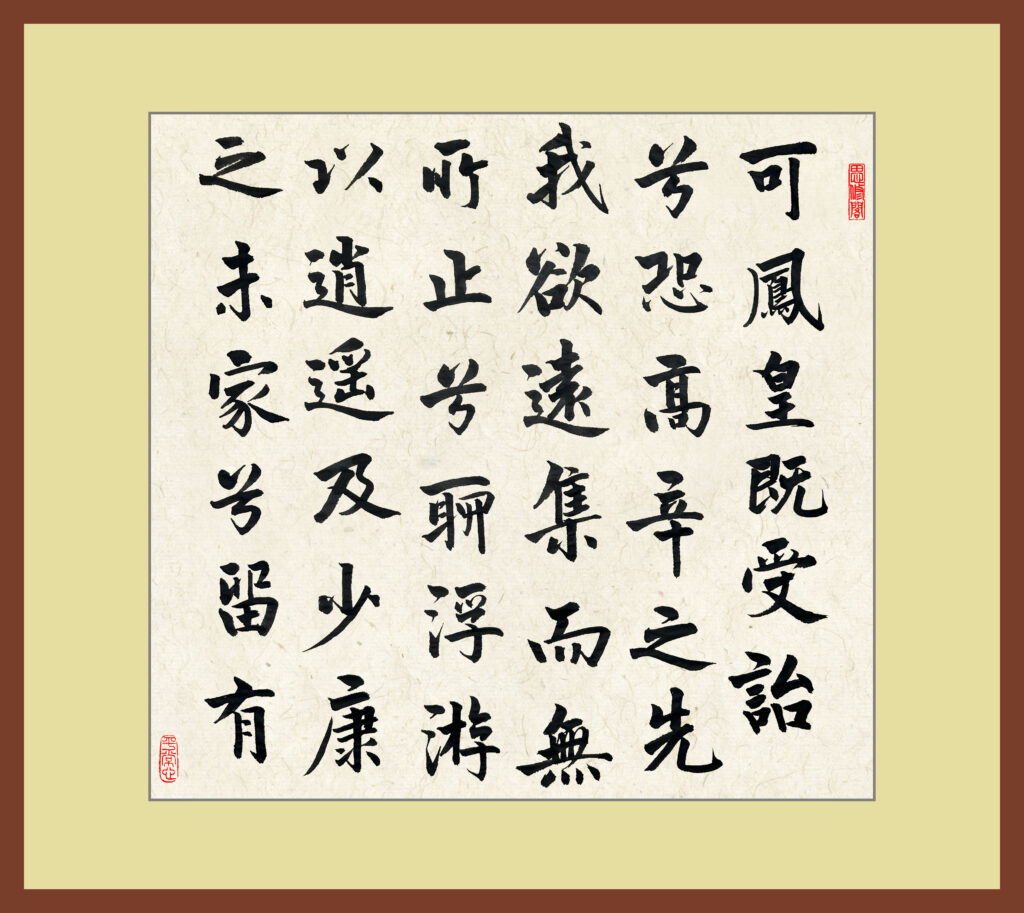 可鳳皇既受詒
兮恐高辛之先
我欲遠集而無
所止兮聊浮游
以逍遥及少康
之未家兮留有
思修閣
平常心